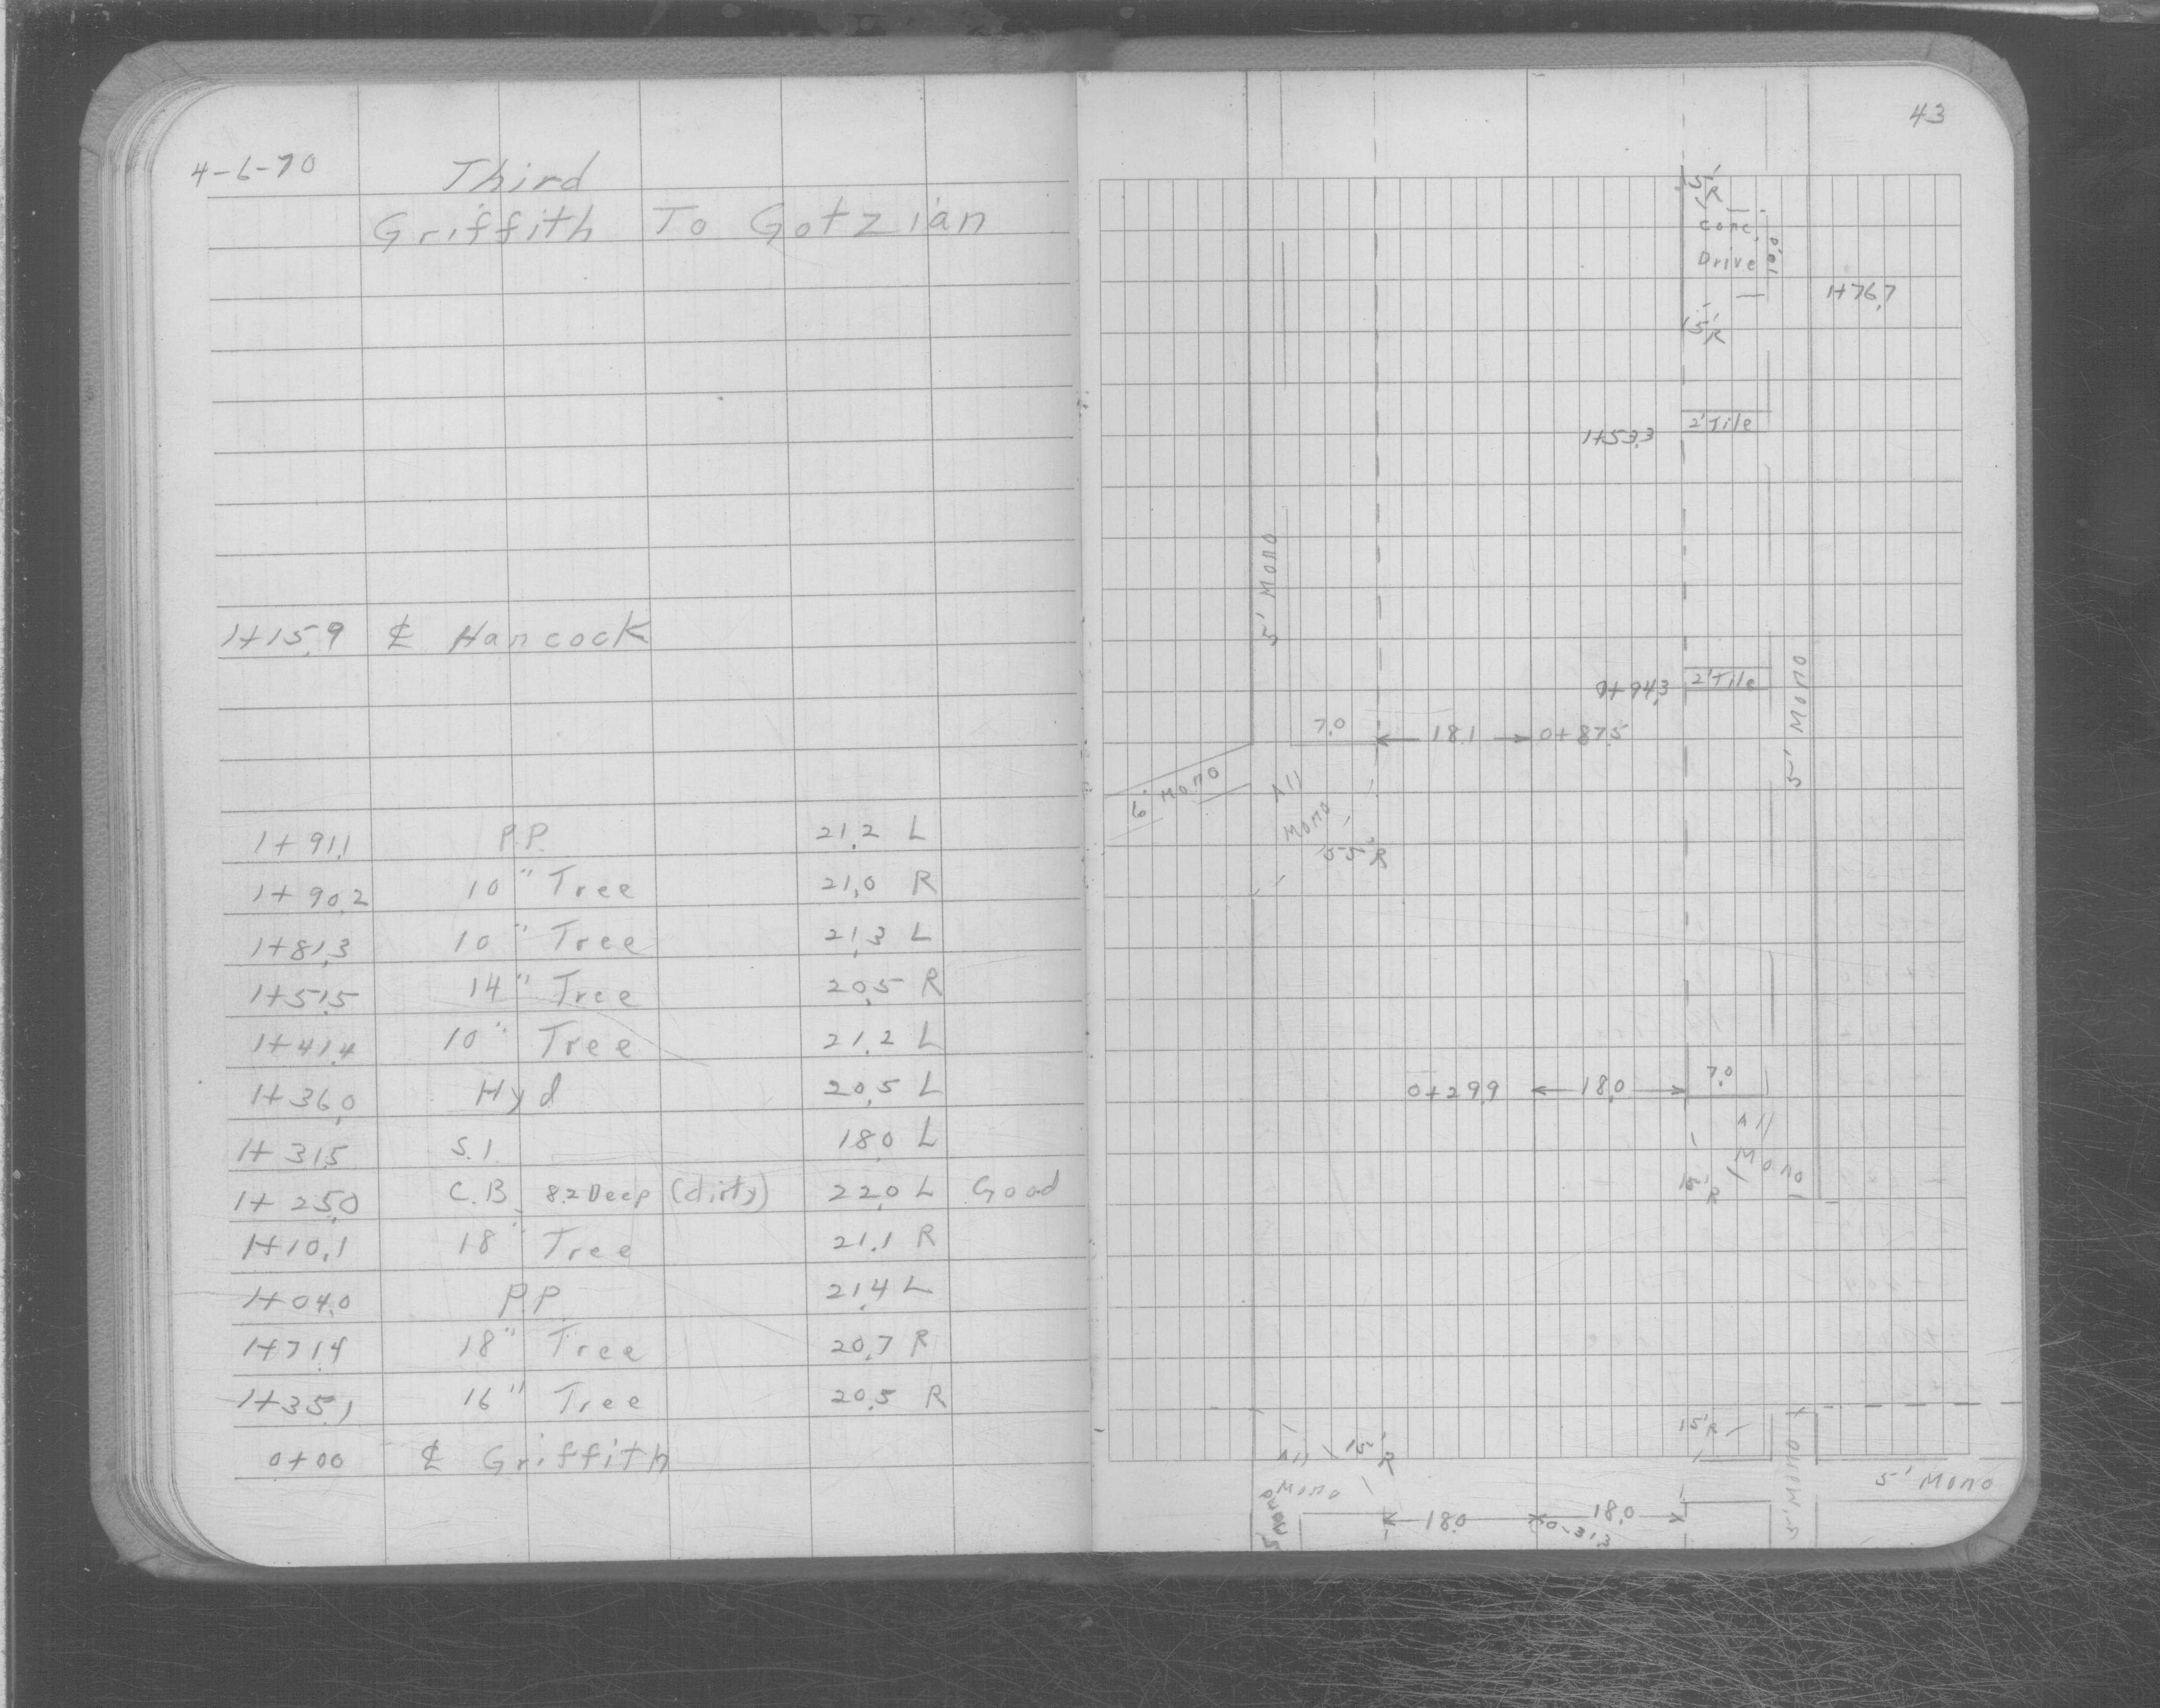 4-6-70 Third
Griffith To Gotzian
1+15.9 ℄ Hancock
1+91.1 P.P. 21.2 L
1+90.2 10" Tree 21.0 R
1+81.3 10" Tree 21.3 L
1+51.5 14" Tree 20.5 R
1+41.4 10" Tree 21.2 L
1+36.0 Hyd 20.5 L
1+31.5 S.I. 18.0 L
1+25.0 C.B. 8.2 Deep (dirty) 22.0 L Good
1+10.1 18" Tree 21.1 R
1+04.0 P.P. 21.4 L
1+71.4 18" Tree 20.7 R
1+35.1 16" Tree 20.5 R
0+00 ℄ Griffith
43
15'R
Conc.
Drive
10.0
1+76.7
15'R
1+53.3 2' Tile
5' Mono
0+94.3 2' Tile
5' Mono
7.0 18.1 0+87.5
6' Mono
All
Mono
55'R
0+29.9 18.0 7.0
All
Mono
15'R
15'R
All
Mono
15'R
5' Mono
5' Mono
5' Mono
18.0 18.0
0-31.3